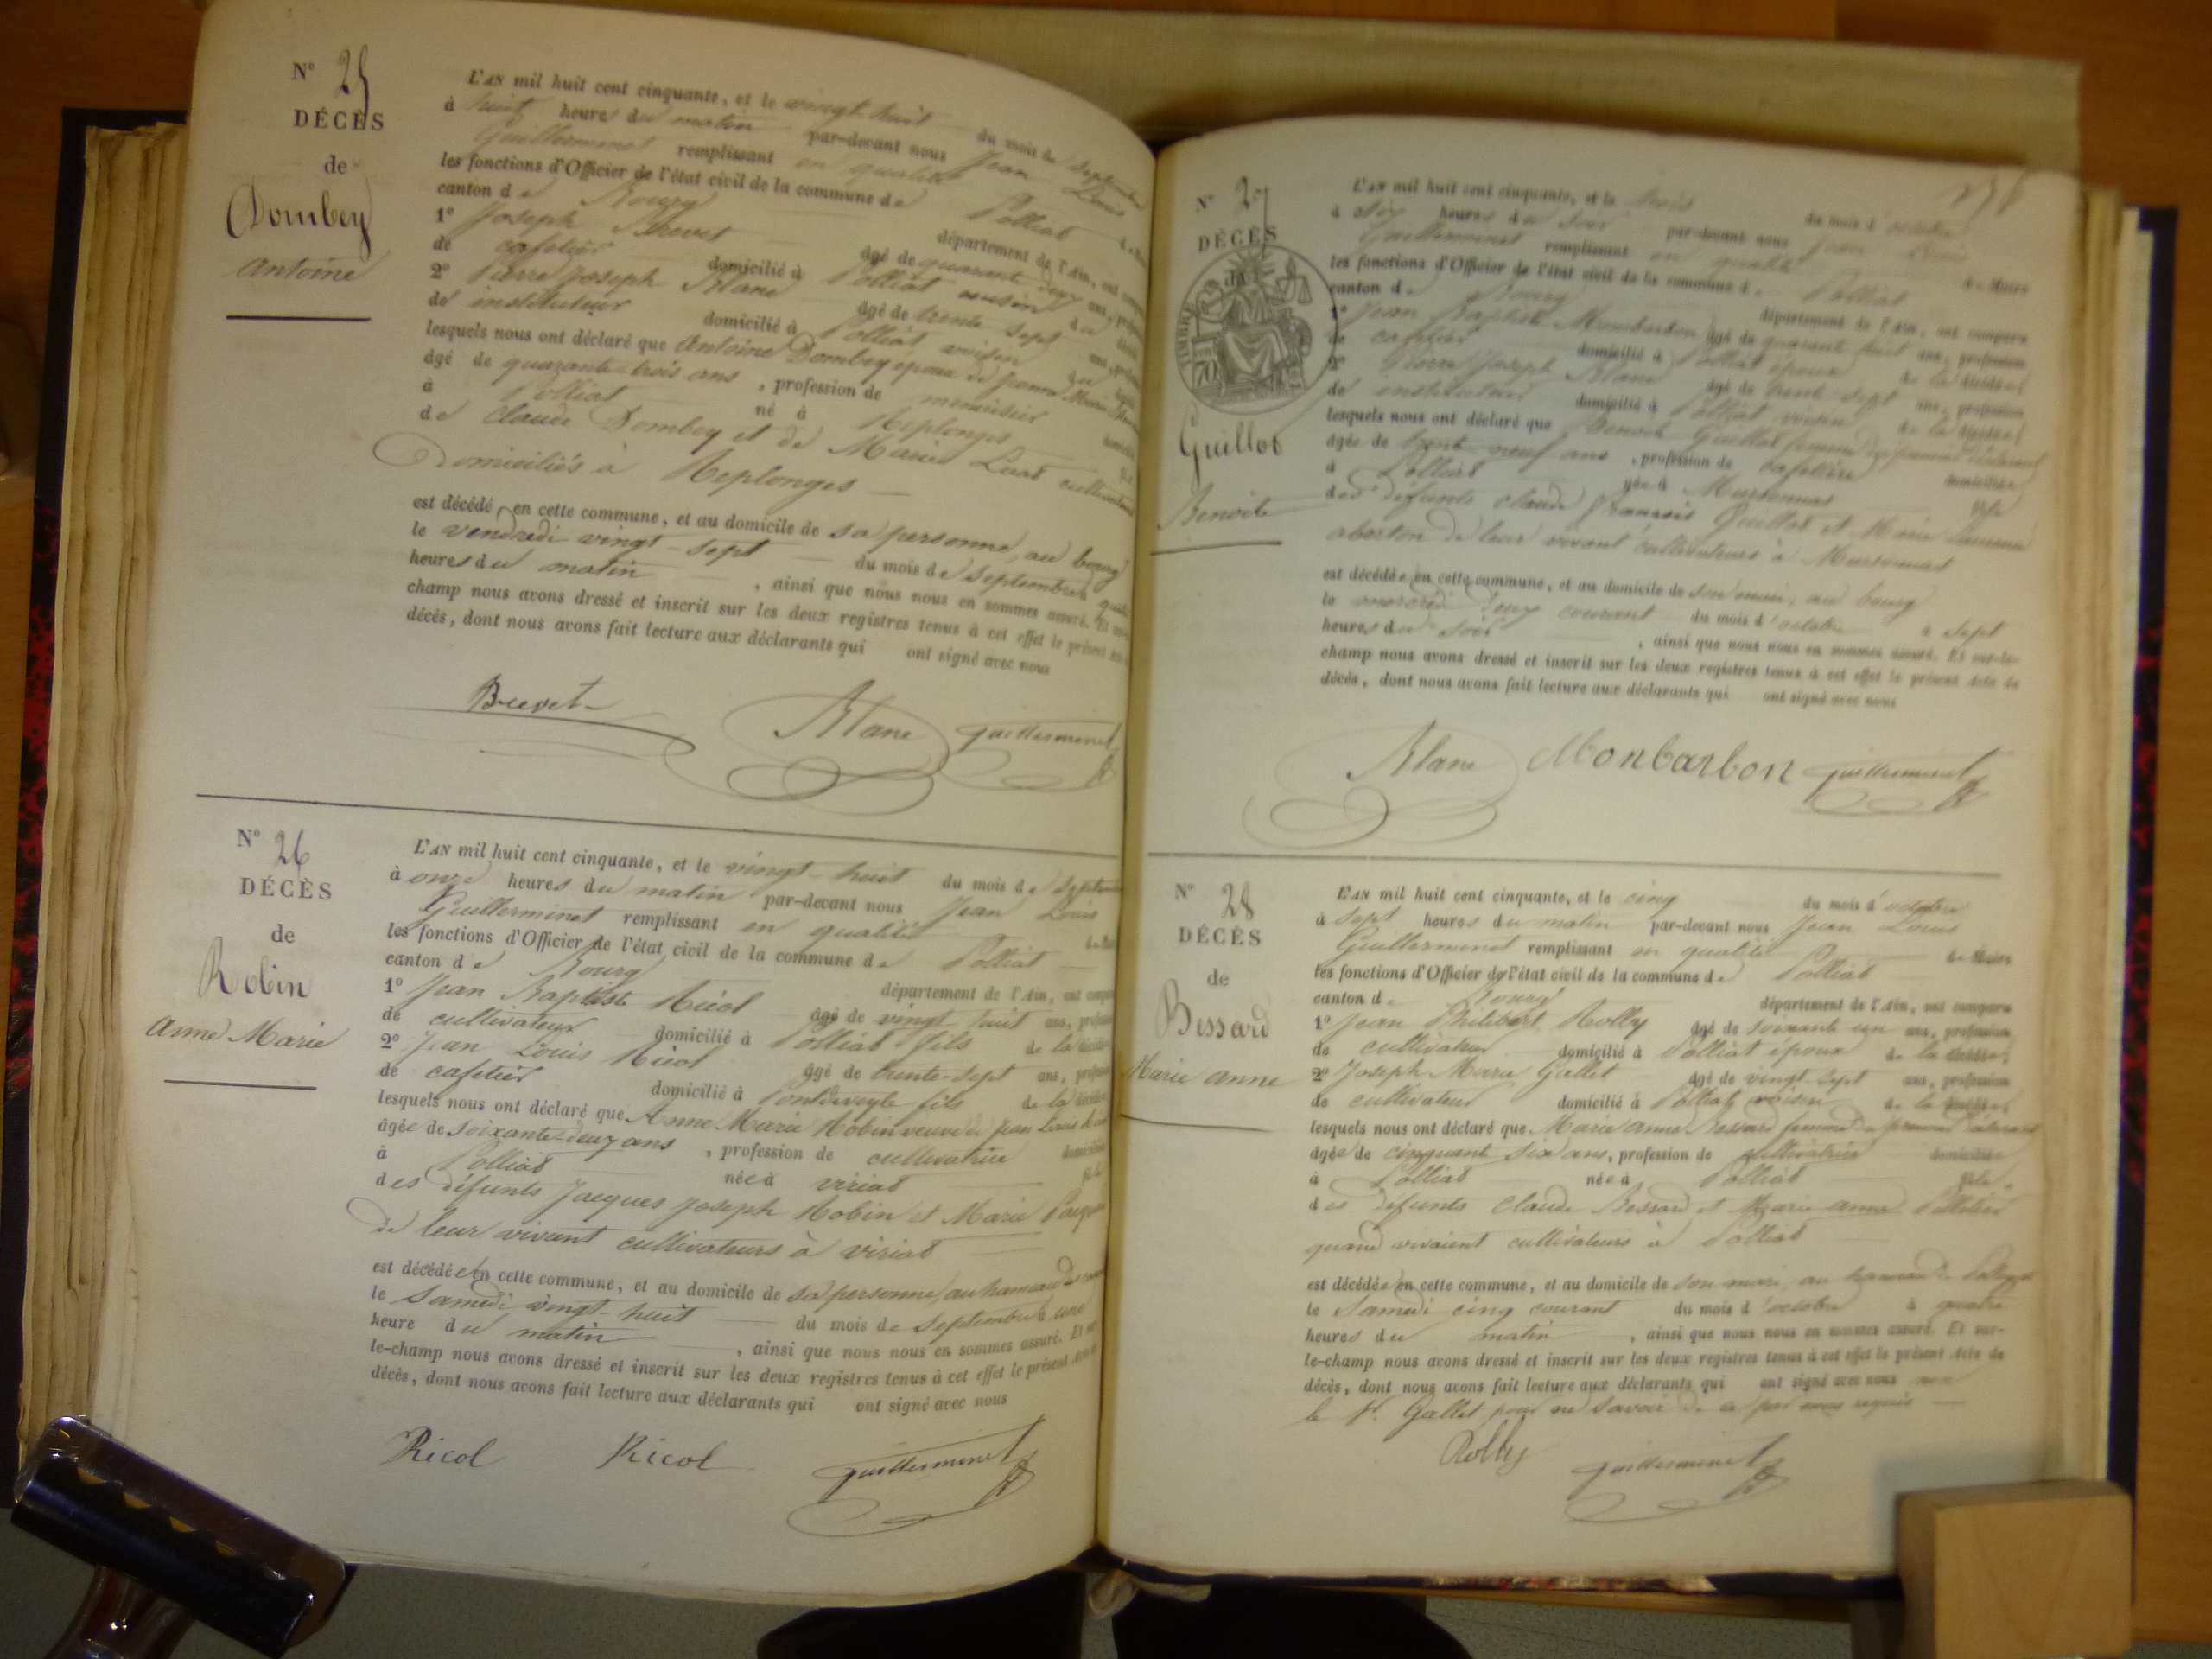 N° 25
DÉCÈS
de
Dombey
Antoine
L'AN mil huit cent cinquante, et le vingt huit du mois de Septembre
à huit heures du matin par-devant nous Jean Louis
Guillerminet remplissant en qualité
les fonctions d'Officier de l'état civil de la commune de Polliat
canton de Bourg département de l'Ain, ont
1° Joseph Brevet âgé de quarante deux ans,
de cafetier domicilié à Polliat cousin du
2° Pierre Joseph Blanc âgé de trente sept ans,
de instituteur domicilié à Polliat voisin du
lesquels nous ont déclaré que Antoine Dombey époux de Jeanne Marie
âgé de quarante-trois ans, profession de menuisier
à Polliat né à Replonges
de Claude Dombey et de Marie cultivateurs
Domiciliés à Replonges
est décédé en cette commune, et au domicile de sa personne, au bourg
le vendredi vingt-sept du mois de septembre
heures du matin, ainsi que nous nous en sommes assuré. Et
champ nous avons dressé et inscrit sur les deux registres tenus à cet effet le présent
décès, dont nous avons fait lecture aux déclarants qui ont signé avec nous
Brevet Blanc guillerminet
N° 26
DÉCÈS
de
Robin
Anne Marie
L'AN mil huit cent cinquante, et le vingt-huit du mois de Septembre
à onze heures du matin par-devant nous Jean Louis
Guillerminet remplissant en qualité
les fonctions d'Officier de l'état civil de la commune de Polliat
canton de Bourg département de l'Ain, ont
1° Jean Baptiste Ricol âgé de vingt huit ans,
de cultivateur domicilié à Polliat fils de la
2° Jean Louis Ricol âgé de trente-sept ans,
de cafetier domicilié à Pontdeveyle fils de la
lesquels nous ont déclaré que Anne Marie Robin veuve de Jean Louis
âgée de soixante-deux ans, profession de cultivatrice
à Polliat née à viriat
des défunts Jacques Joseph Robin et Marie
de leur vivant cultivateurs à viriat
est décédée en cette commune, et au domicile de sa personne, au hameau
le Samedi vingt-huit du mois de septembre à une
heure du matin, ainsi que nous nous en sommes assuré. Et
le-champ nous avons dressé et inscrit sur les deux registres tenus à cet effet le présent
décès, dont nous avons fait lecture aux déclarants qui ont signé avec nous
Ricol Ricol guillerminet
N° 27
DÉCÈS
de
Guillot
Benoite
L'AN mil huit cent cinquante, et le trois du mois d'octobre
à six heures du soir par-devant nous Jean Louis
Guillerminet remplissant en qualité de Maire
les fonctions d'Officier de l'état civil de la commune de Polliat
canton de Bourg département de l'Ain, ont comparu
1° Jean Baptiste Monbarbon âgé de quarante huit ans, profession
de cafetier domicilié à Polliat époux de la
2° Pierre Joseph Blanc âgé de trente-sept ans, profession
de instituteur domicilié à Polliat voisin de la
lesquels nous ont déclaré que Benoite Guillot femme du premier déclarant
âgée de trente-neuf ans, profession de cafetière domiciliée
à Polliat née à Marsonnas fille
des défunts Claude François Guillot et Marie
de leur vivant cultivateurs à Marsonnas
est décédée en cette commune, et au domicile de son mari, au bourg
le mercredi deux courant du mois d'octobre à sept
heures du soir, ainsi que nous nous en sommes assuré. Et sur-le-
champ nous avons dressé et inscrit sur les deux registres tenus à cet effet le présent Acte de
décès, dont nous avons fait lecture aux déclarants qui ont signé avec nous
Blanc Monbarbon guillerminet
N° 28
DÉCÈS
de
Bessard
Marie anne
L'AN mil huit cent cinquante, et le cinq du mois d'octobre
à sept heures du matin par-devant nous Jean Louis
Guillerminet remplissant en qualité de Maire
les fonctions d'Officier de l'état civil de la commune de Polliat
canton de Bourg département de l'Ain, ont comparu
1° Jean Philibert Rolly âgé de soixante un ans, profession
de cultivateur domicilié à Polliat époux de la
2° Joseph Marie Gallet âgé de vingt-sept ans, profession
de cultivateur domicilié à Polliat, voisin de la
lesquels nous ont déclaré que Marie anne Bessard femme du premier déclarant
âgée de cinquante six ans, profession de cultivatrice domiciliée
à Polliat née à Polliat fille
des défunts Claude Bessard et Marie anne
quand vivaient cultivateurs à Polliat
est décédée en cette commune, et au domicile de son mari, au hameau de
le Samedi cinq courant du mois d'octobre à quatre
heures du matin, ainsi que nous nous en sommes assuré. Et sur-
le-champ nous avons dressé et inscrit sur les deux registres tenus à cet effet le présent Acte de
décès, dont nous avons fait lecture aux déclarants qui ont signé avec nous non
le Sr. Gallet pour ne savoir de ce par nous requis
Rolly guillerminet